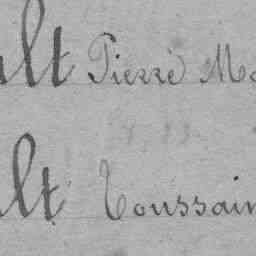 ult Pierre Ma
ult Toussain